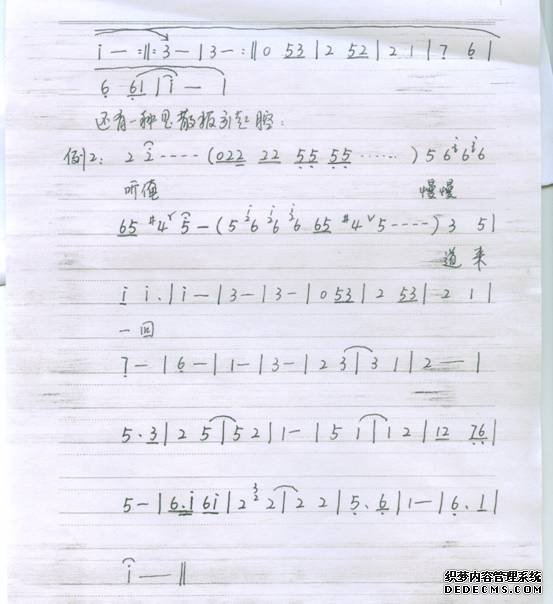 i — :‖: 3 — | 3 — :‖ 0 53 | 2 52 | 2 1 | 7 6 |
6 61 | i — |
还有一种是散板引起腔:
例2: 2 2 ---- (022 22 55 55 ······ ) 5 6 i 6 i 6
听俺 慢慢
65 #4 ˅ 5 — ( 5 i 2 6 i 2 6 i 3 6 65 #4 ˅ 5 ---- ) 3 5 |
道来
i i. | i — | 3 — | 3 — | 0 53 | 2 53 | 2 1 |
一回
7 — | 6 — | 1 — | 3 — | 2 3 | 3 1 | 2 — |
5. 3 | 2 5 | 5 2 | 1 — | 5 1 | 1 2 | 12 76 |
5 — | 6. i 6i | 2 3 2 2 | 2 2 | 5. 6 | 1 — | 6. 1 |
i — ‖
织梦内容管理系统
DEDECMS.COM